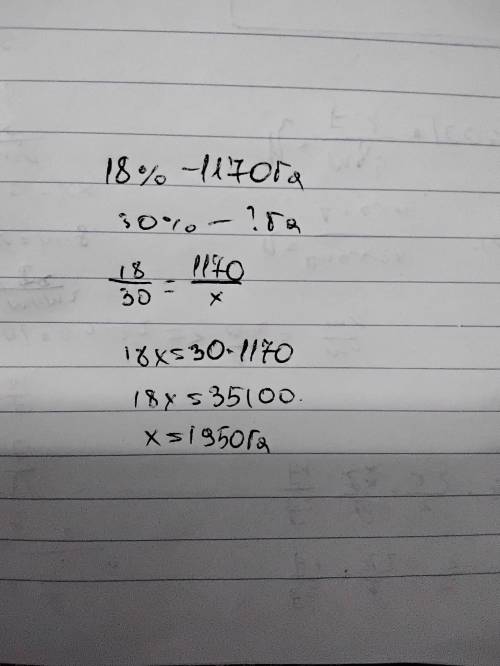 18% - 1170га
30% - ? га
18/30 = 1170/x
18x = 30 · 1170
18x = 35100.
x = 1950га